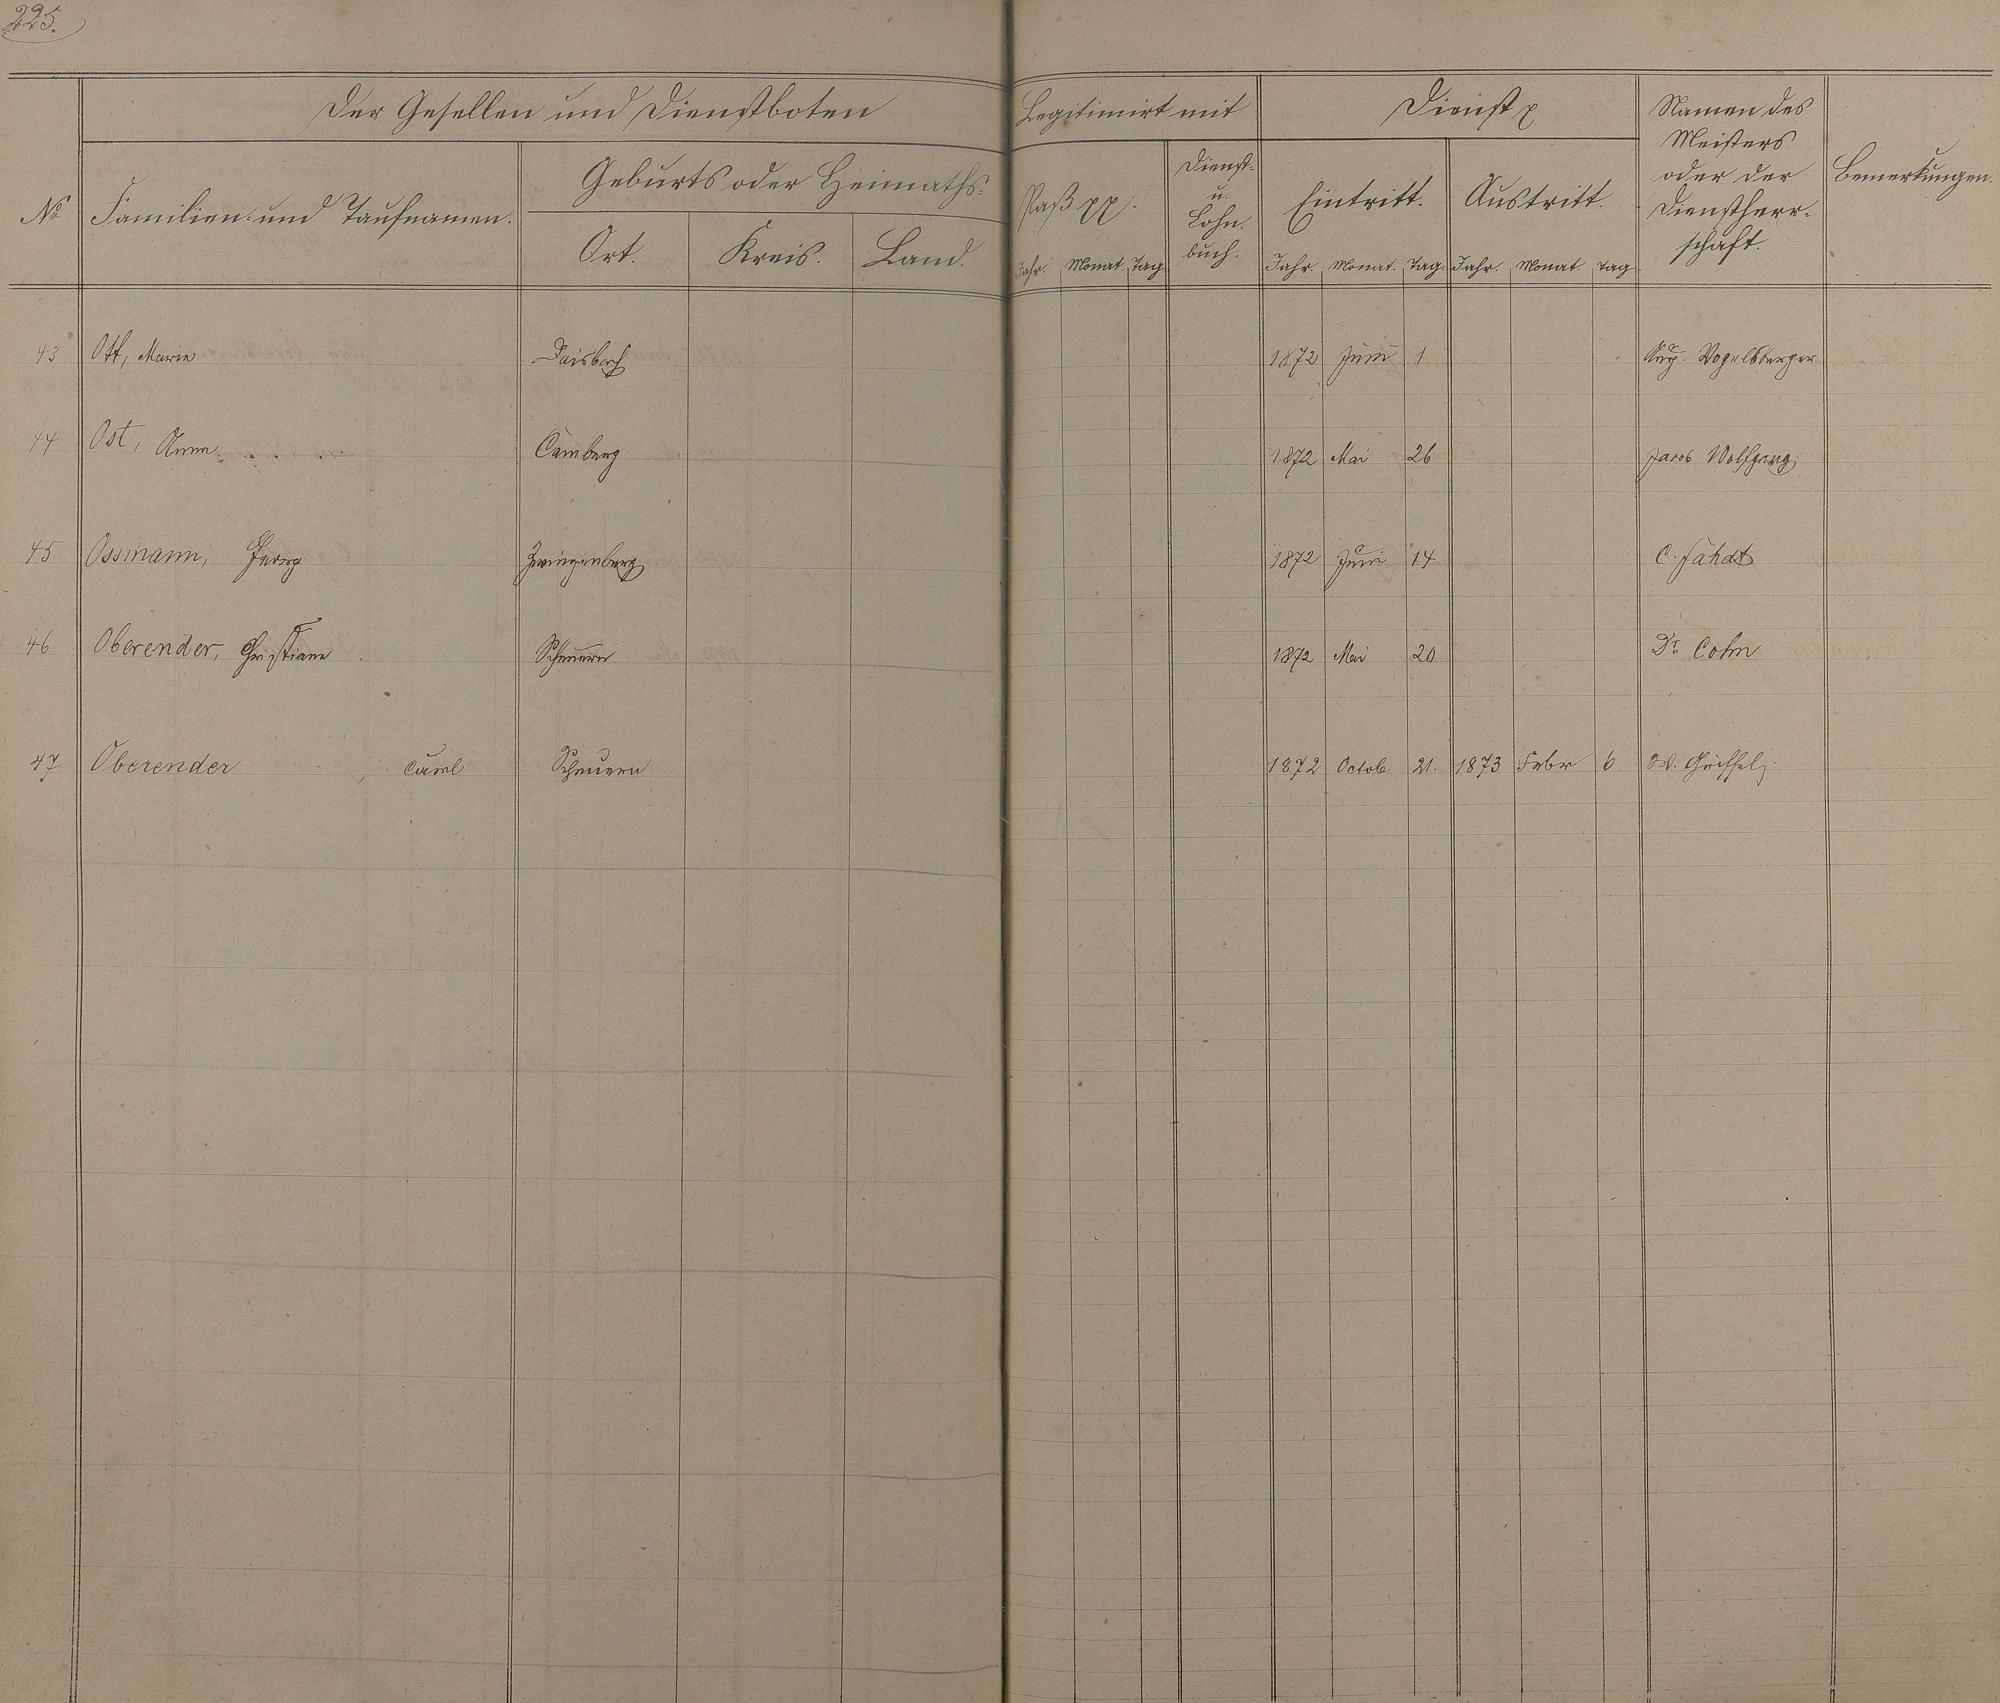 225.
Der Gesellen und Dienstboten
Legitimirt mit
Dienst
Namen des
Meisters
oder der
Dienstherr-
schaft.
Bemerkungen.
No
Familien- und Taufnamen.
Geburts oder Heimaths-
Ort.
Kreis.
Land.
Paß pp.
Jahr. Monat. Tag
Dienst-
u.
Lohn-
buch.
Eintritt.
Jahr. Monat. Tag.
Austritt.
Jahr. Monat. Tag
43 Ott, Marie Daisbach 1872 Juni 1 Aug. Vogelsberger
44 Ost, Anna Camberg 1872 Mai 26 Jacob Wolfgang
45 Ossmann, Georg Zwingenberg 1872 Juni 14 C. Jahdt
46 Oberender, Christiane Scheuern 1872 Mai 20 Dr. Cohn
47 Oberender, Carl Scheuern 1872 Octob 21. 1873 Febr 6 W.